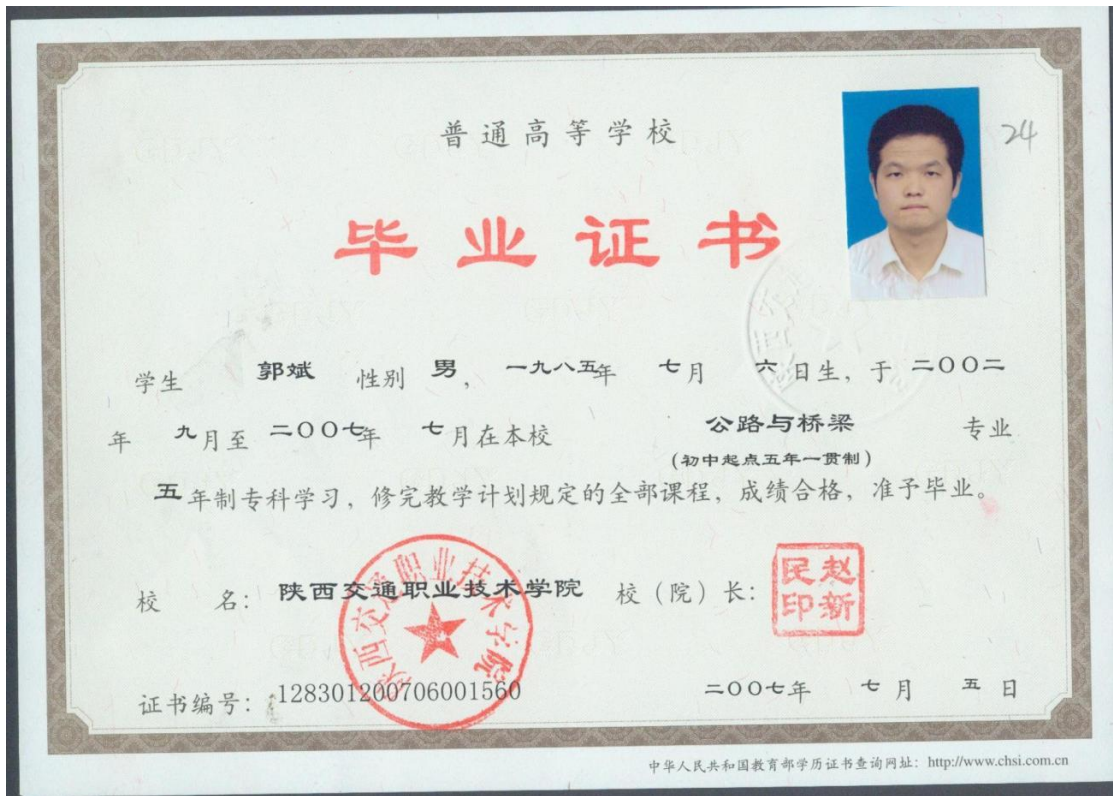 普通高等学校
24
毕业证书
学生 郭斌 性别 男，一九八五年 七月 六日生，于二〇〇二
年 九月至 二〇〇七年 七月在本校 公路与桥梁 专业
(初中起点五年一贯制)
五年制专科学习，修完教学计划规定的全部课程，成绩合格，准予毕业。
校 名：陕西交通职业技术学院 校（院）长：
陕西交通职业技术学院
赵新民印
证书编号：128301200706001560 二〇〇七年 七月 五日
中华人民共和国教育部学历证书查询网址：http://www.chsi.com.cn